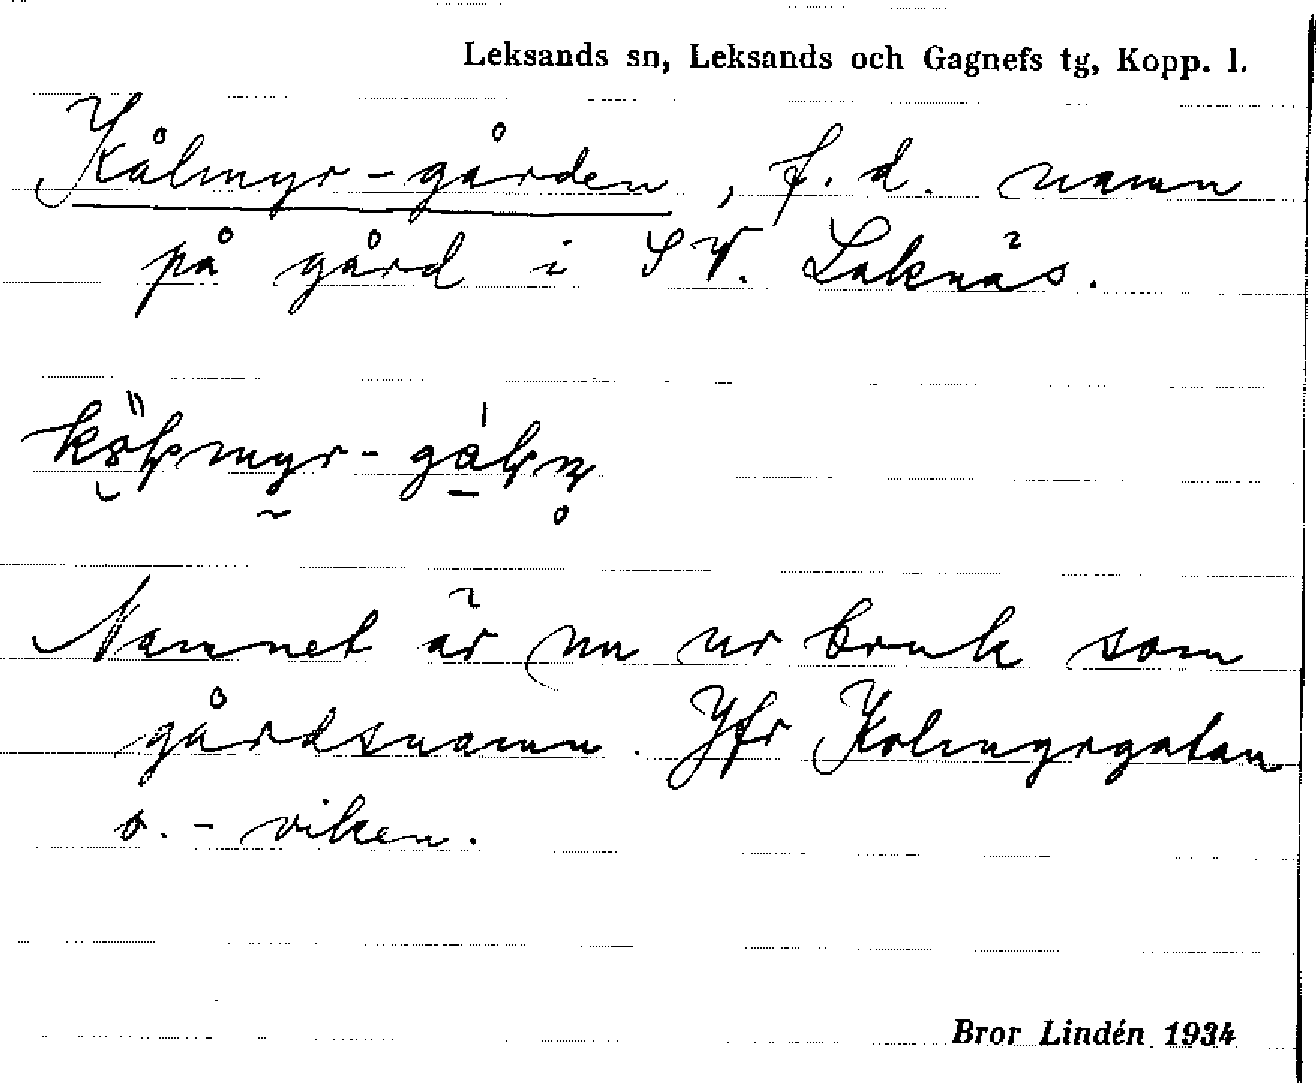 Leksands sn, Leksands och Gagnefs tg, Kopp. l.
Kålmyr-gården, f.d. namn
på gård i SV. Laknäs.
Namnet är nu ur bruk som
gårdsnamn. Jfr Kolmyrgatan
o. - viken.
Bror Lindén 1934